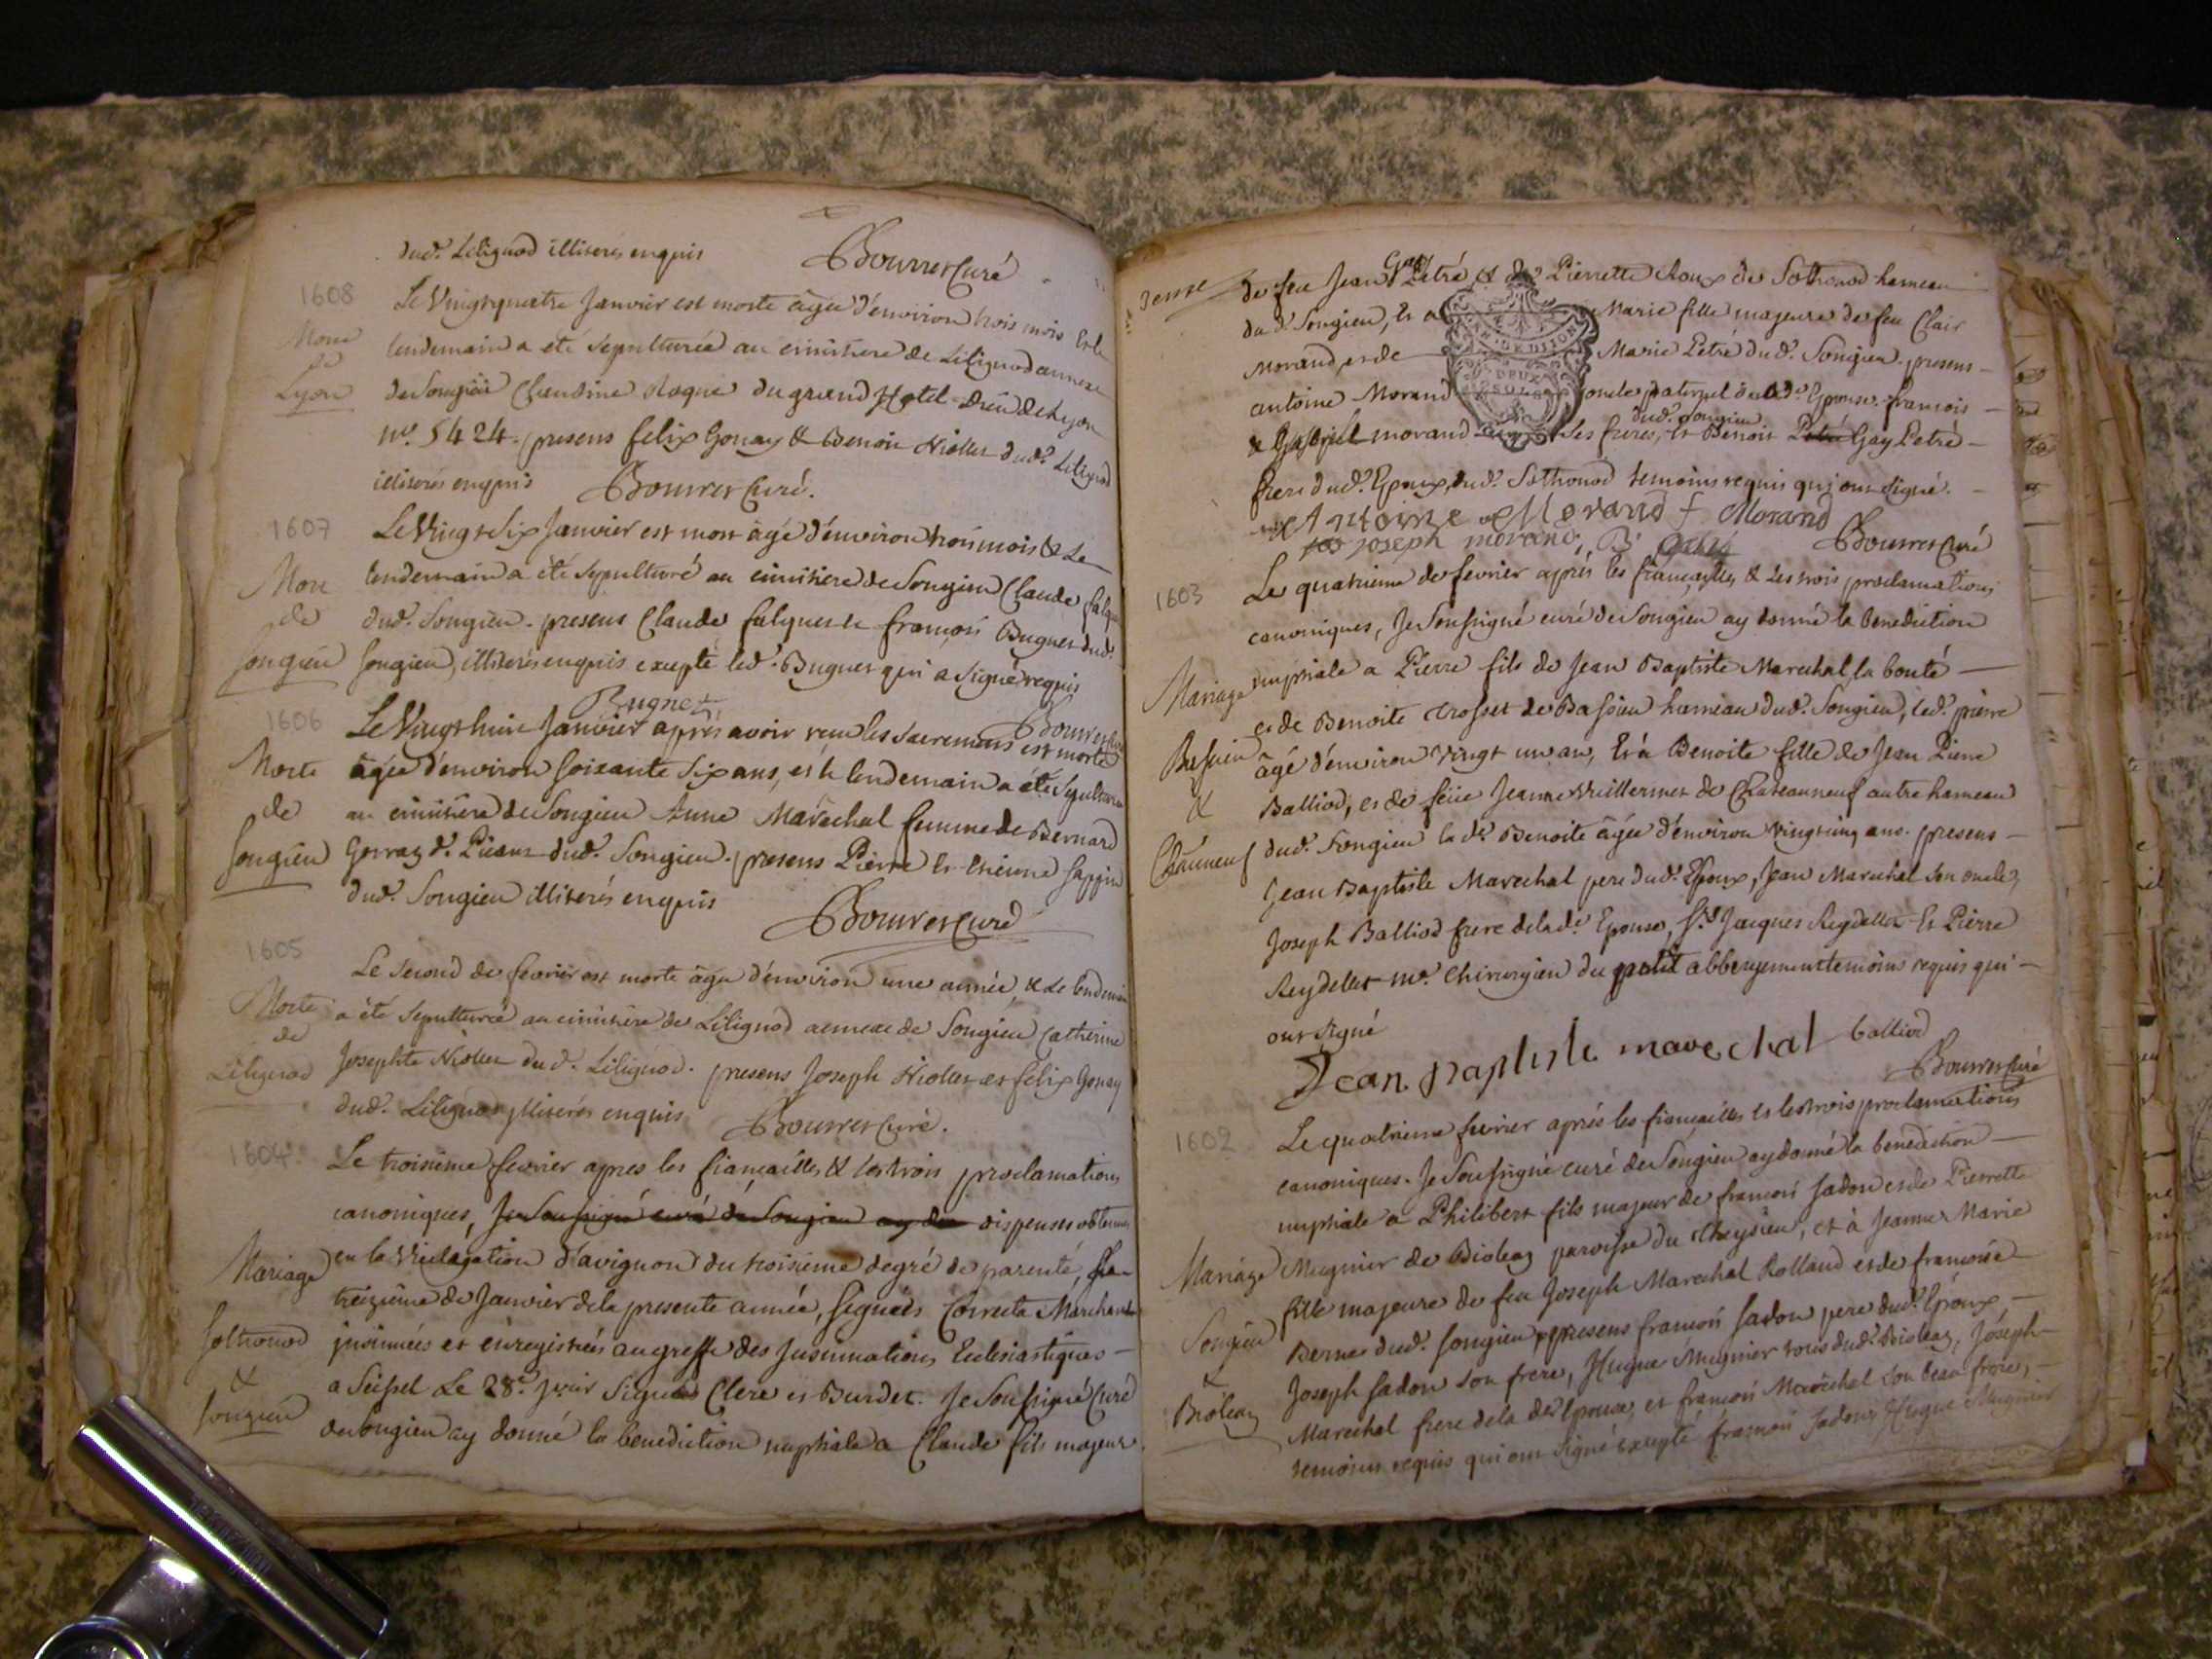 dud. Lilignod illiterés enquis Bouvret Curé
1608
Le Vingtquatre Janvier est morte âgée d'environ trois mois Et le
Morte
de
Lyon
lendemain a été sepulturée au cimitiere de Lilignod annexe
de Songieu Claudine Roque du grand Hotel Dieu de Lyon
no. 5424. presens felix Gonay & Benoit Niollet dud. Lilignod
illiterés enquis Bouvret Curé.
1607
Le Vingt Six Janvier est mort âgé d'environ trois mois & Le
Mort
de
Songieu
lendemain a été sepulturé au cimitiere de Songieu Claude
dud. Songieu. presens Claude falquet et françois Buguet dud.
Songieu, illiterés enquis excepté led. Buguet qui a signé requis
Bugnet
Bouvret Curé
1606
Le Vingt huit Janvier après avoir reçu les sacremens est morte
Morte
de
Songieu
âgée d'environ soixante six ans, et le lendemain a été sepulturée
au cimitiere de Songieu Anne Maréchal femme de Bernard
Gorraz d. dud. Songieu. presens Pierre et Etienne Sappin
dud. Songieu illiterés enquis
Bouvret Curé
1605
Le second de fevrier est morte âgée d'environ une année, & le lendemain
Morte
de
Lilignod
a été sepulturée au cimitiere de Lilignod annexe de Songieu Catherine
Josephte Niollet dud. Lilignod. presens Joseph Niollet et felix Gonay
dud. Lilignod illiterés enquis Bouvret Curé.
1604
Le troisième fevrier apres les fiançailles & les trois proclamations
canoniques, Je soussigné curé de Songieu ay dispenses obtenues
Mariage
Sothonod
&
Songieu
en la Vicelegation d'avignon du troisieme degré de parenté,
treizieme de Janvier de la presente année, signées Correcta Marchand
insinuées et enregistrées au greffe des Insinuations Ecclesiastiques
a Seissel Le 28e. Signées Clerc et Burdet. Je soussigné Curé
de Songieu ay donné la benediction nuptiale a Claude fils majeur
de feu Jean Gay Petré & de Pierrette Roux de Sothonod hameau
dud. Songieu, et a Marie fille majeure de feu Clair
Morand, et de Marie Petré dud. Songieu. presens
antoine Morand oncle paternel de lad. Epouse. françois
dud. Songieu
& Gaspard morand ses freres, et Benoit Petré Gay Petré
frere dud. Epoux, dud. Sothonod temoins requis qui ont signé.
Antoine Morand f Morand
joseph morand, B Bouvret Curé
1603
Le quatrieme de fevrier après les fiançailles & Les trois proclamations
canoniques, Je soussigné curé de Songieu ay donné la benediction
Mariage
Bassieu
&
Chauneuf
nuptiale a Pierre fils de Jean Baptiste Marechal la bonté
et de Benoite Trosset de Bassieu hameau dud. Songieu, led. pierre
âgé d'environ vingt un an, Et à Benoite fille de Jean Pierre
Balliod, et de feüe Jeanne Vuillermet de Chateauneuf autre hameau
dud. Songieu la de. Benoite âgée d'environ vingt cinq ans. presens
Jean Baptiste Marechal pere dud. Epoux, Jean Marechal son oncle,
Joseph Balliod frere de lad. Epouse, Sr. Jacques Reydellet Et Pierre
Reydellet me. Chirurgien du petit abbergement temoins requis qui
ont signé
Jean Baptiste marechal balliod
Bouvret Curé
1602
Le quatrieme fevrier après les fiançailles et les trois proclamations
canoniques. Je soussigné curé de Songieu ay donné la benediction
nuptiale a Philibert fils majeur de françois Jadon et de Pierrette
Mariage
Songieu
&
Bioleaz
Mugnier de Bioleaz paroisse du Cheysieu, et à Jeanne Marie
fille majeure de feu Joseph Marechal Rolland et de françoise
Bernet dud. Songieu, presens françois Jadon pere dud. Epoux,
Joseph Jadon son frere, Hugue Mugnier tous dud. Bioleaz, Joseph
Marechal frere de la de. Epouse, et françois Maréchal son beau frere,
temoins requis qui ont signé excepté françois Jadon, Hugue Mugnier